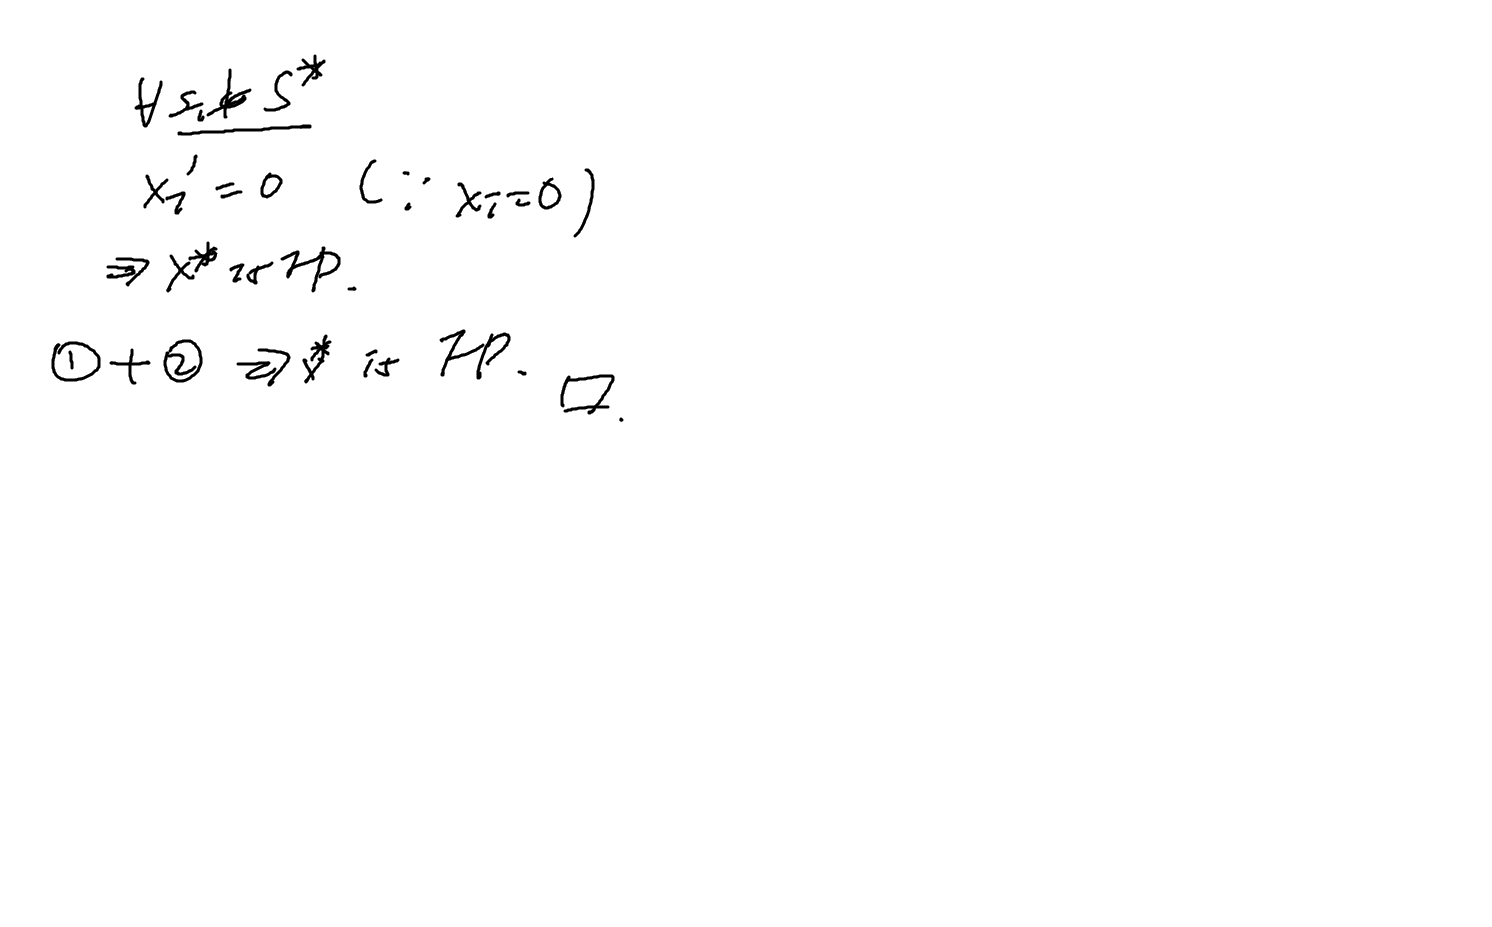 ∀ sᵢ ∉ S*
xᵢ' = 0 (∵ xᵢ = 0)
⇒ x* is FP.
① + ② ⇒ x* is FP. □.